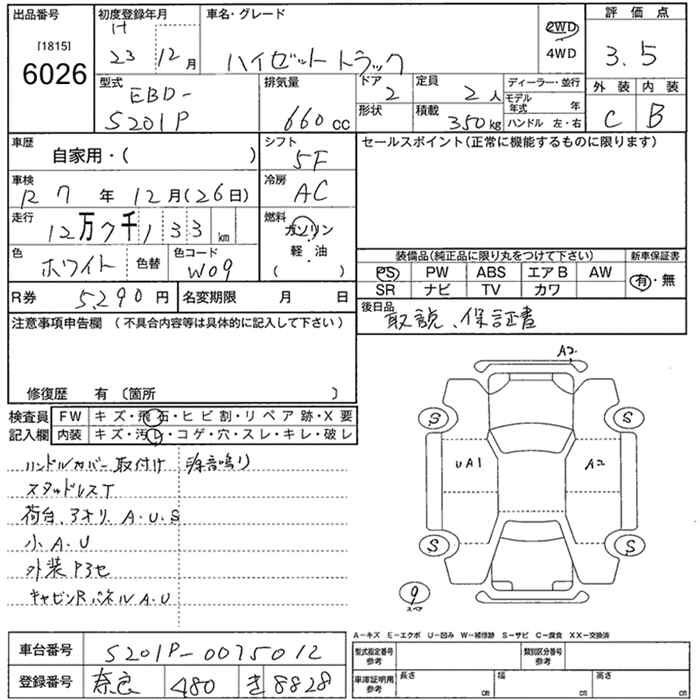 出品番号 初度登録年月 車名・グレード 評価点
[1815] H
6026 23 12月 ハイゼットトラック 2WD 4WD 3.5
型式 排気量 ドア 定員 ディーラー・並行 外装 内装
EBD- 2 2人 モデル年式 年
S201P 660cc 形状 積載 350kg ハンドル 左・右 C B
車歴 シフト セールスポイント(正常に機能するものに限ります)
自家用・( ) 5F
車検 冷房
R7年12月(26日) AC
走行 燃料
12万7千133km ガソリン
軽・油
( )
色 色替 色コード 装備品(純正品に限り丸をつけて下さい) 新車保証書
ホワイト W09 PS PW ABS エアB AW 有・無
SR ナビ TV カワ
R券 5,290円 名変期限 月 日 後日品
取説、保証書
注意事項申告欄 (不具合内容等は具体的に記入して下さい)
修復歴 有 (箇所 )
検査員 FW キズ・飛石・ヒビ割・リペア跡・X要
記入欄 内装 キズ・汚レ・コゲ・穴・スレ・キレ・破レ
ハンドルカバー取付け 異音鳴り
スタッドレスT
荷台、アオリ A・U・S
小A・U
外装
キャビンRパネルA・U
A2
S S
UA1 A2
S S
9
スペア
A-キズ E-エクボ U-凹み W-補修跡 S-サビ C-腐食 XX-交換済
車台番号 S201P-0075012 型式指定番号 参考 類別区分番号 参考
登録番号 奈良 480 き 8828 車庫証明用 参考 長さ cm 幅 cm 高さ cm